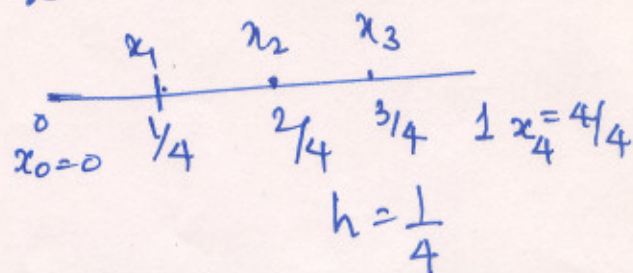 x₁ x₂ x₃
0 1/4 2/4 3/4 1 x₄ = 4/4
x₀=0
h = 1/4